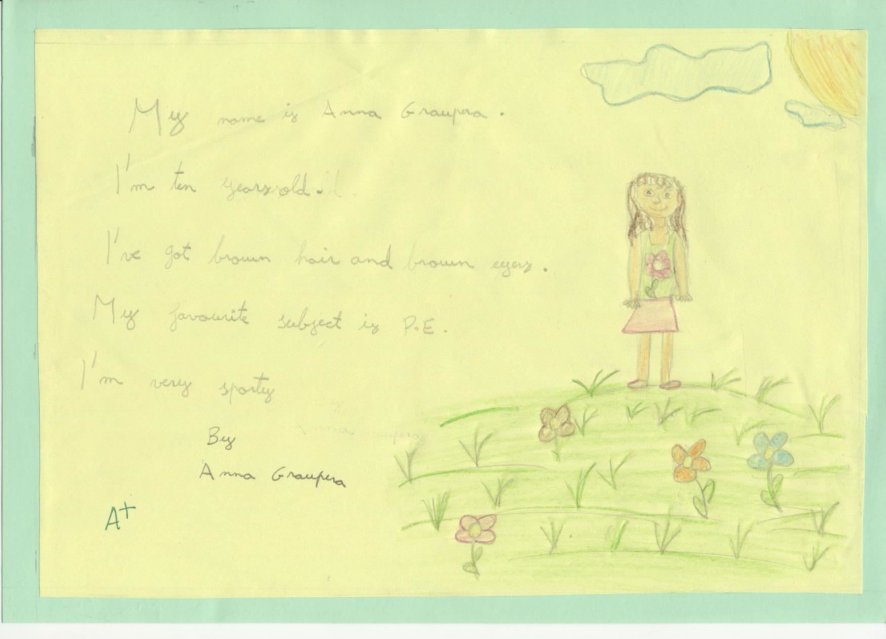 My name is Anna Graupera.
I'm ten years old.
I've got brown hair and brown eyes.
My favourite subject is P.E.
I'm very sporty
By
Anna Graupera
A+